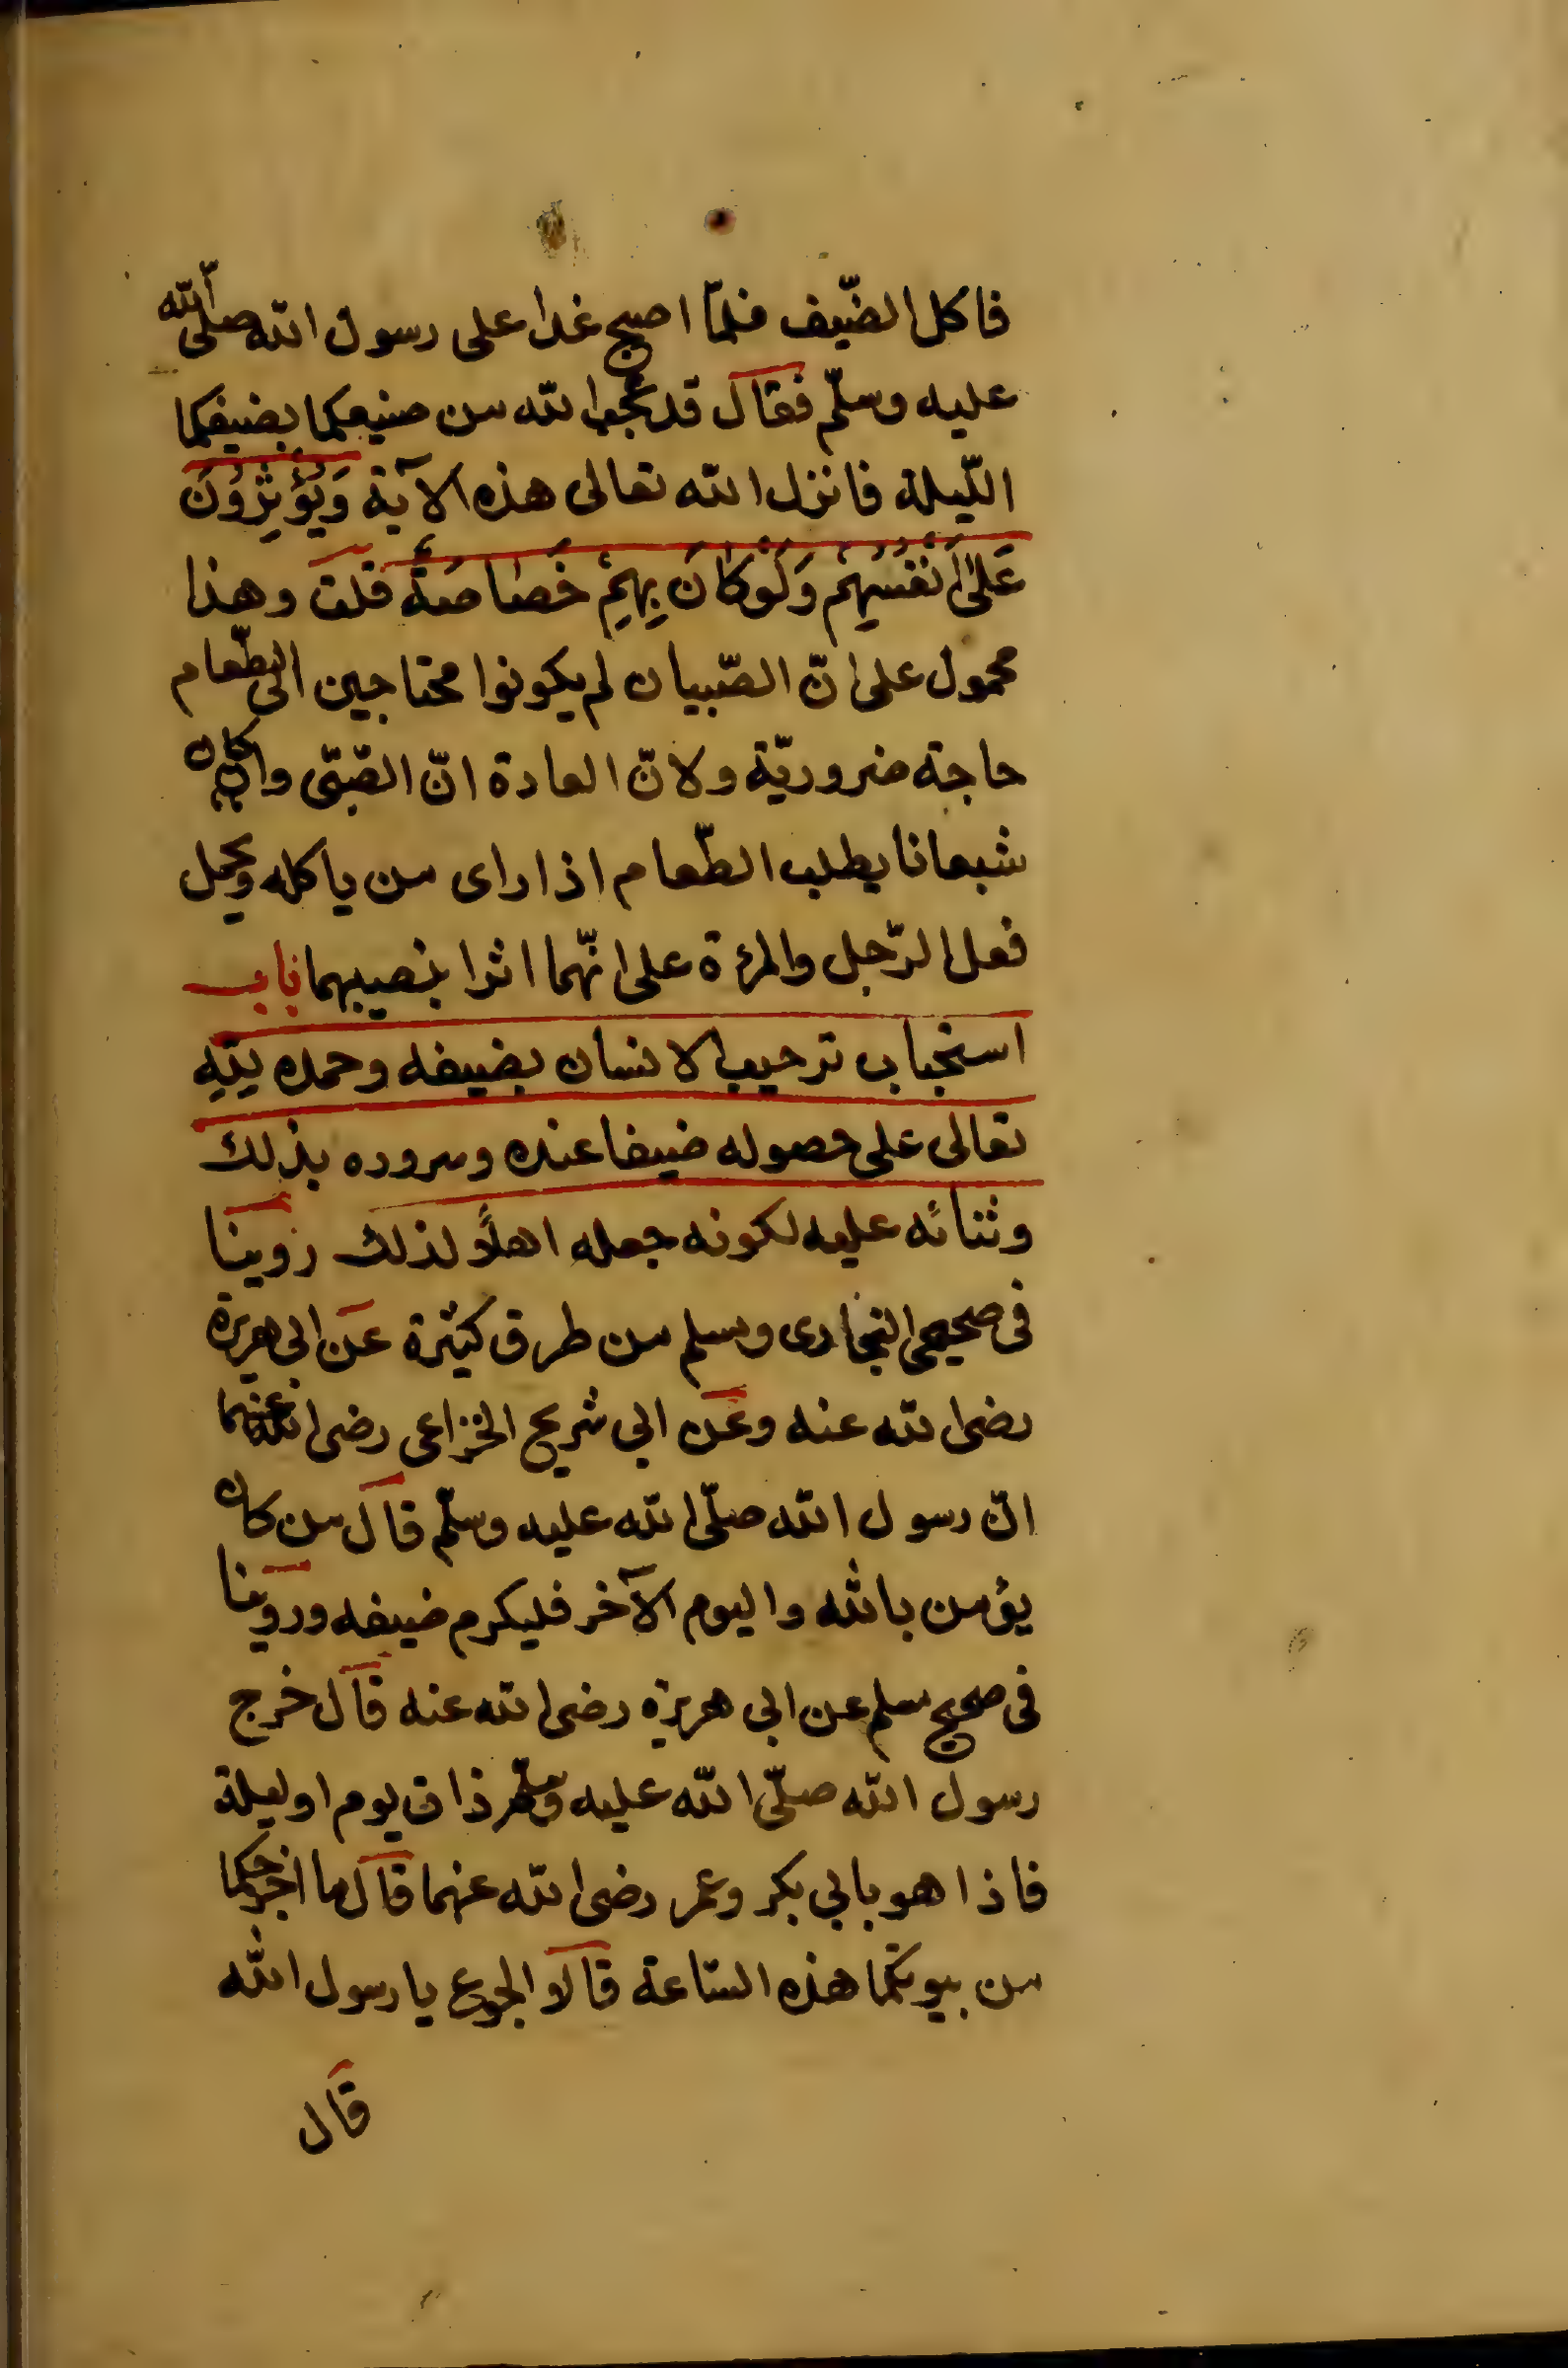 فاكل الضّيف فلمّا اصبح غدا على رسول الله صلّى الله
عليه وسلّم فقال قد عجب الله من صنيعكما بضيفكما
اللّيلة فانزل الله تعالى هذه الآية وَيُؤْثِرُونَ
عَلىٰ اَنْفُسِهِمْ وَلَوْ كَانَ بِهِمْ خَصَاصَةٌ قلت وهذا
محمول على انّ الصّبيان لم يكونوا محتاجين الى الطّعام
حاجة ضروريّة ولانّ العادة انّ الصّبىّ وان كان
شبعانا يطلب الطّعام اذا راى من ياكله ويحمل
فعل الرّجل والمرءة على انّهما اثرا بنصيبهما باب
استحباب ترحيب الانسان بضيفه وحمده لِلّٰهِ
تعالى على حصوله ضيفا عنده وسروره بذلك
وثنائه عليه لكونه جعله اهلًا لذلك روينا
فى صحيحى البخارى ومسلم من طرق كثيرة عن ابى هريرة
رضى الله عنه وعن ابي شريح الخزاعى رضى الله عنهما
انّ رسول الله صلّى الله عليه وسلّم قال من كان
يؤمن بالله واليوم الآخر فليكرم ضيفه وروينا
فى صحيح مسلم عن ابي هريرة رضى الله عنه قال خرج
رسول الله صلّى الله عليه وسلّم ذات يوم او ليلة
فاذا هو بابي بكر وعمر رضى الله عنهما قال ما اخرجكما
من بيوتكما هذه السّاعة قالا الجوع يا رسول الله
قال